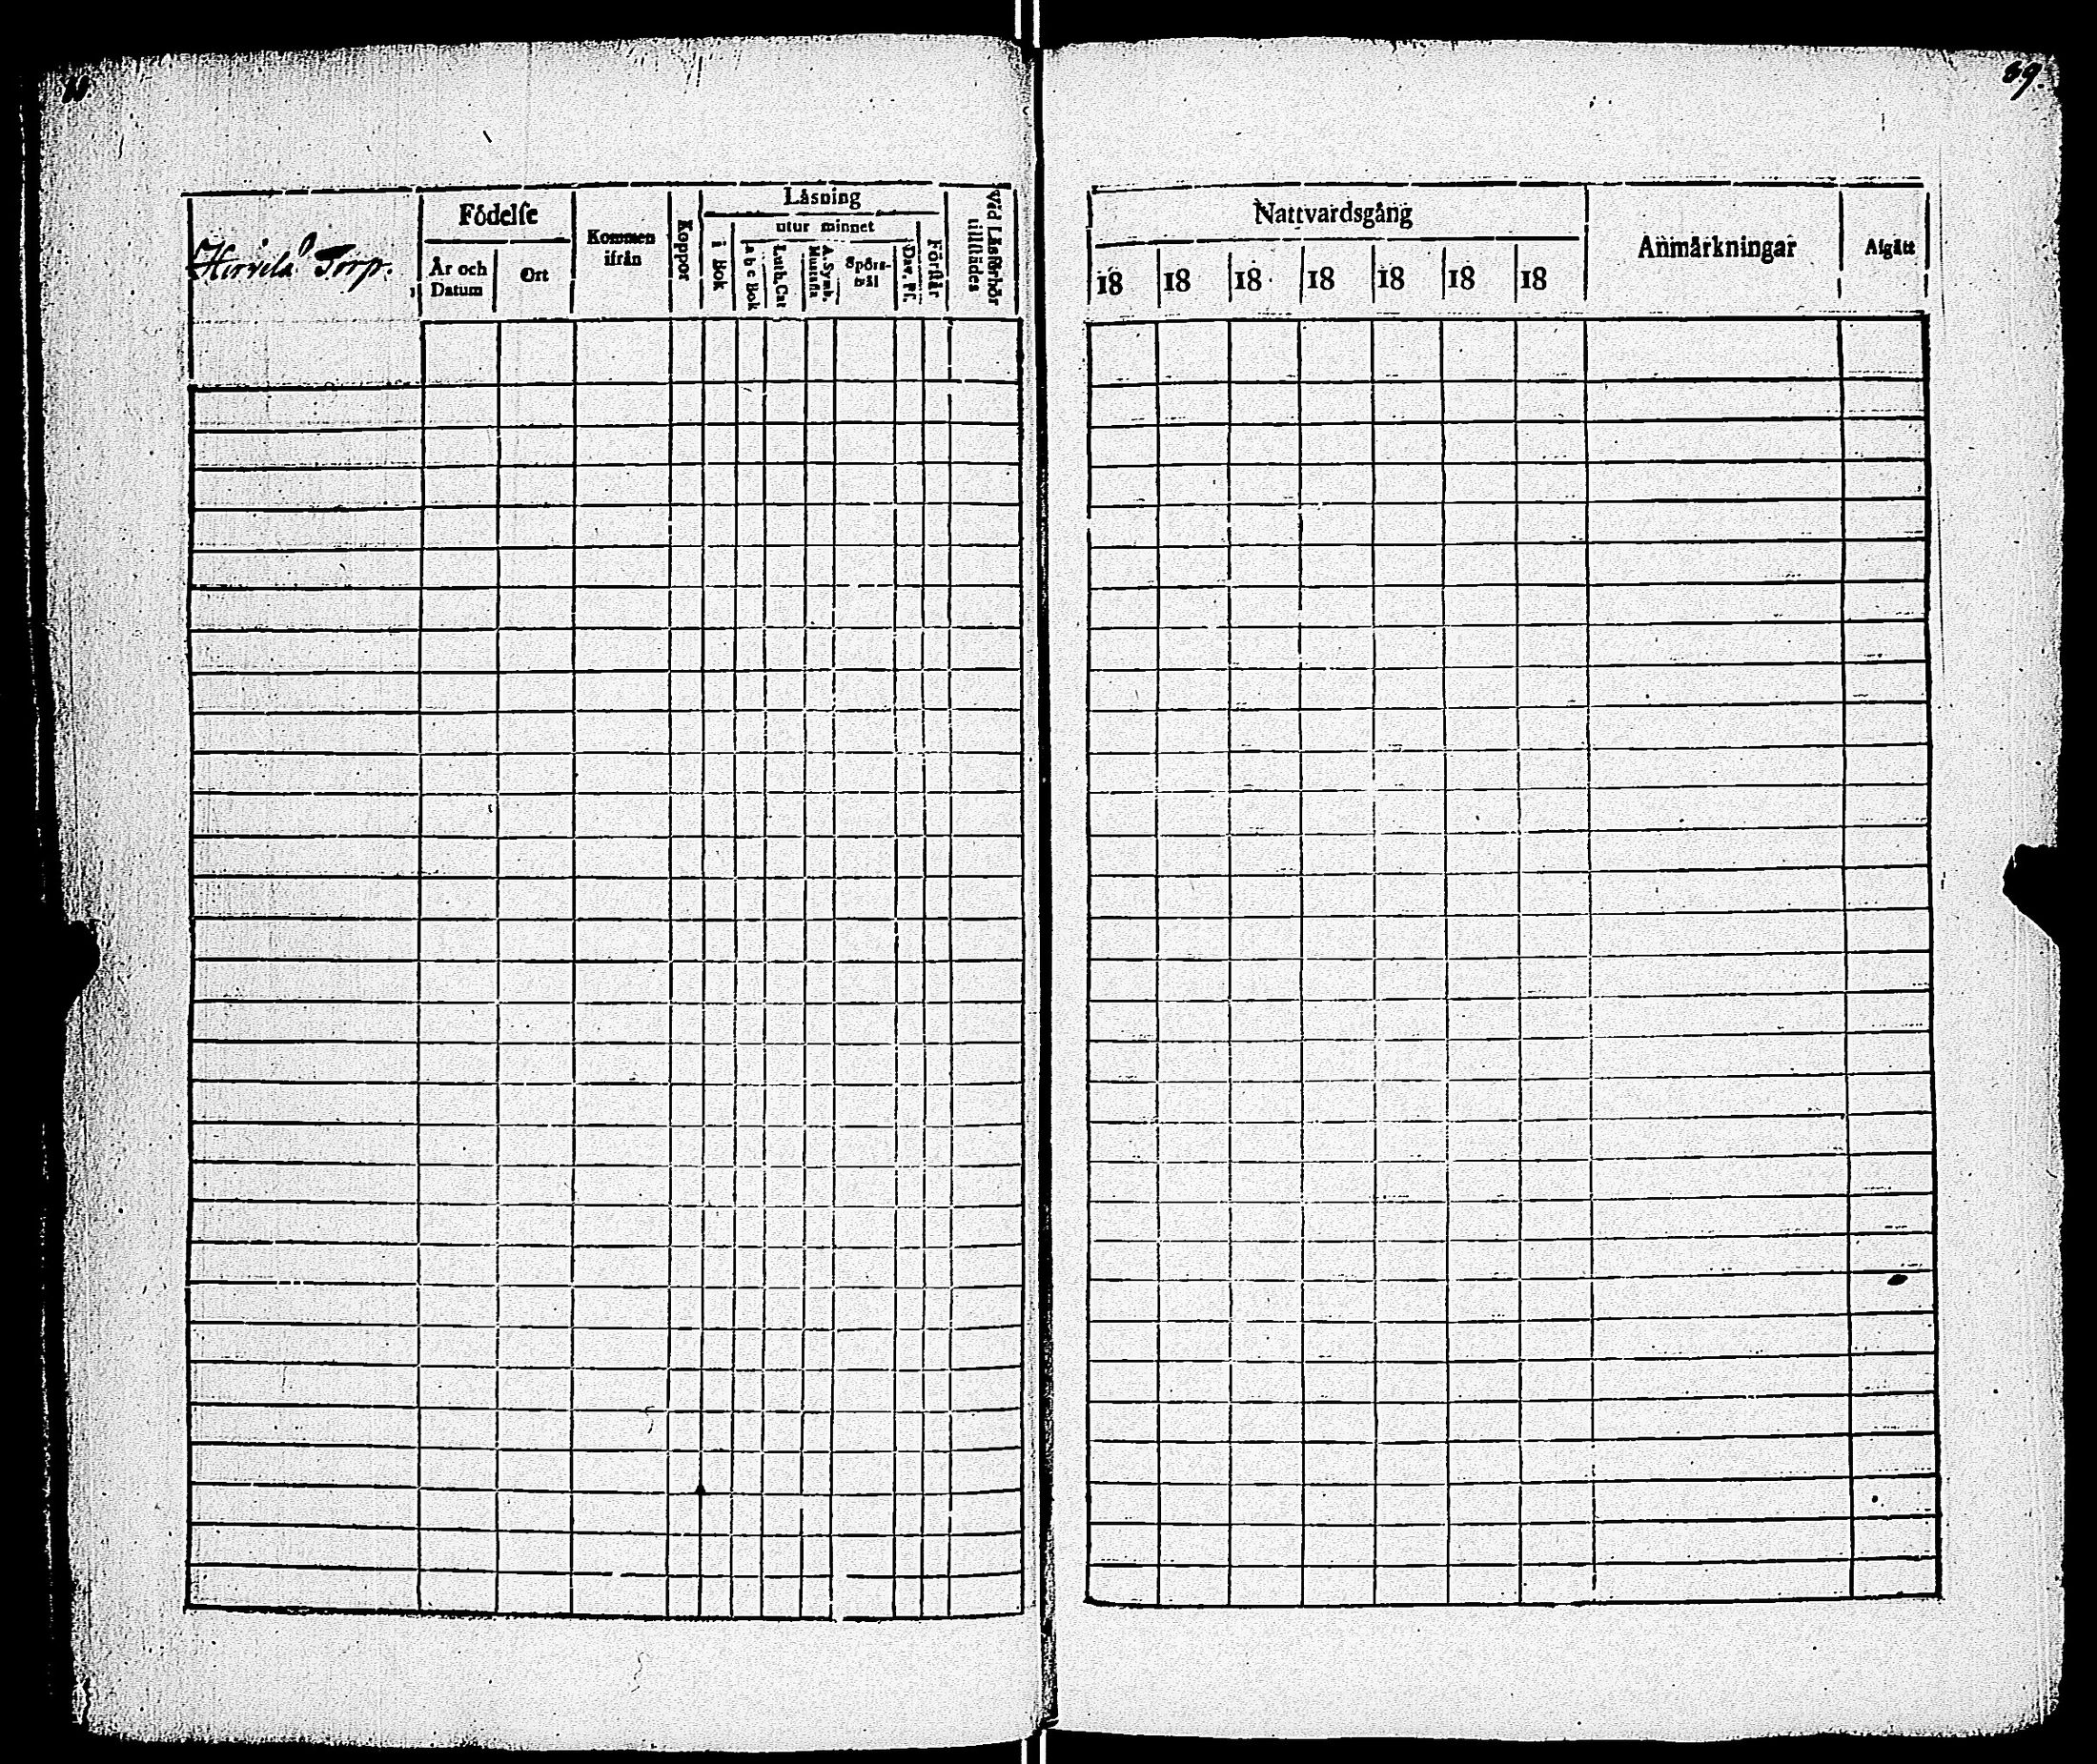 89.
Hirvelä Torp.
Födelse
År och Datum
Ort
Kommen ifrån
Koppor
Läsning
i Bok
utur minnet
a b c Bok
Luth. Cat
A. Symb.
Spörs-
mål
Dav. Ps.
Förstår
Vid Läsförhör
tillstädes
Nattvardsgång
18 18 18 18 18 18 18
Anmärkningar
Afgått